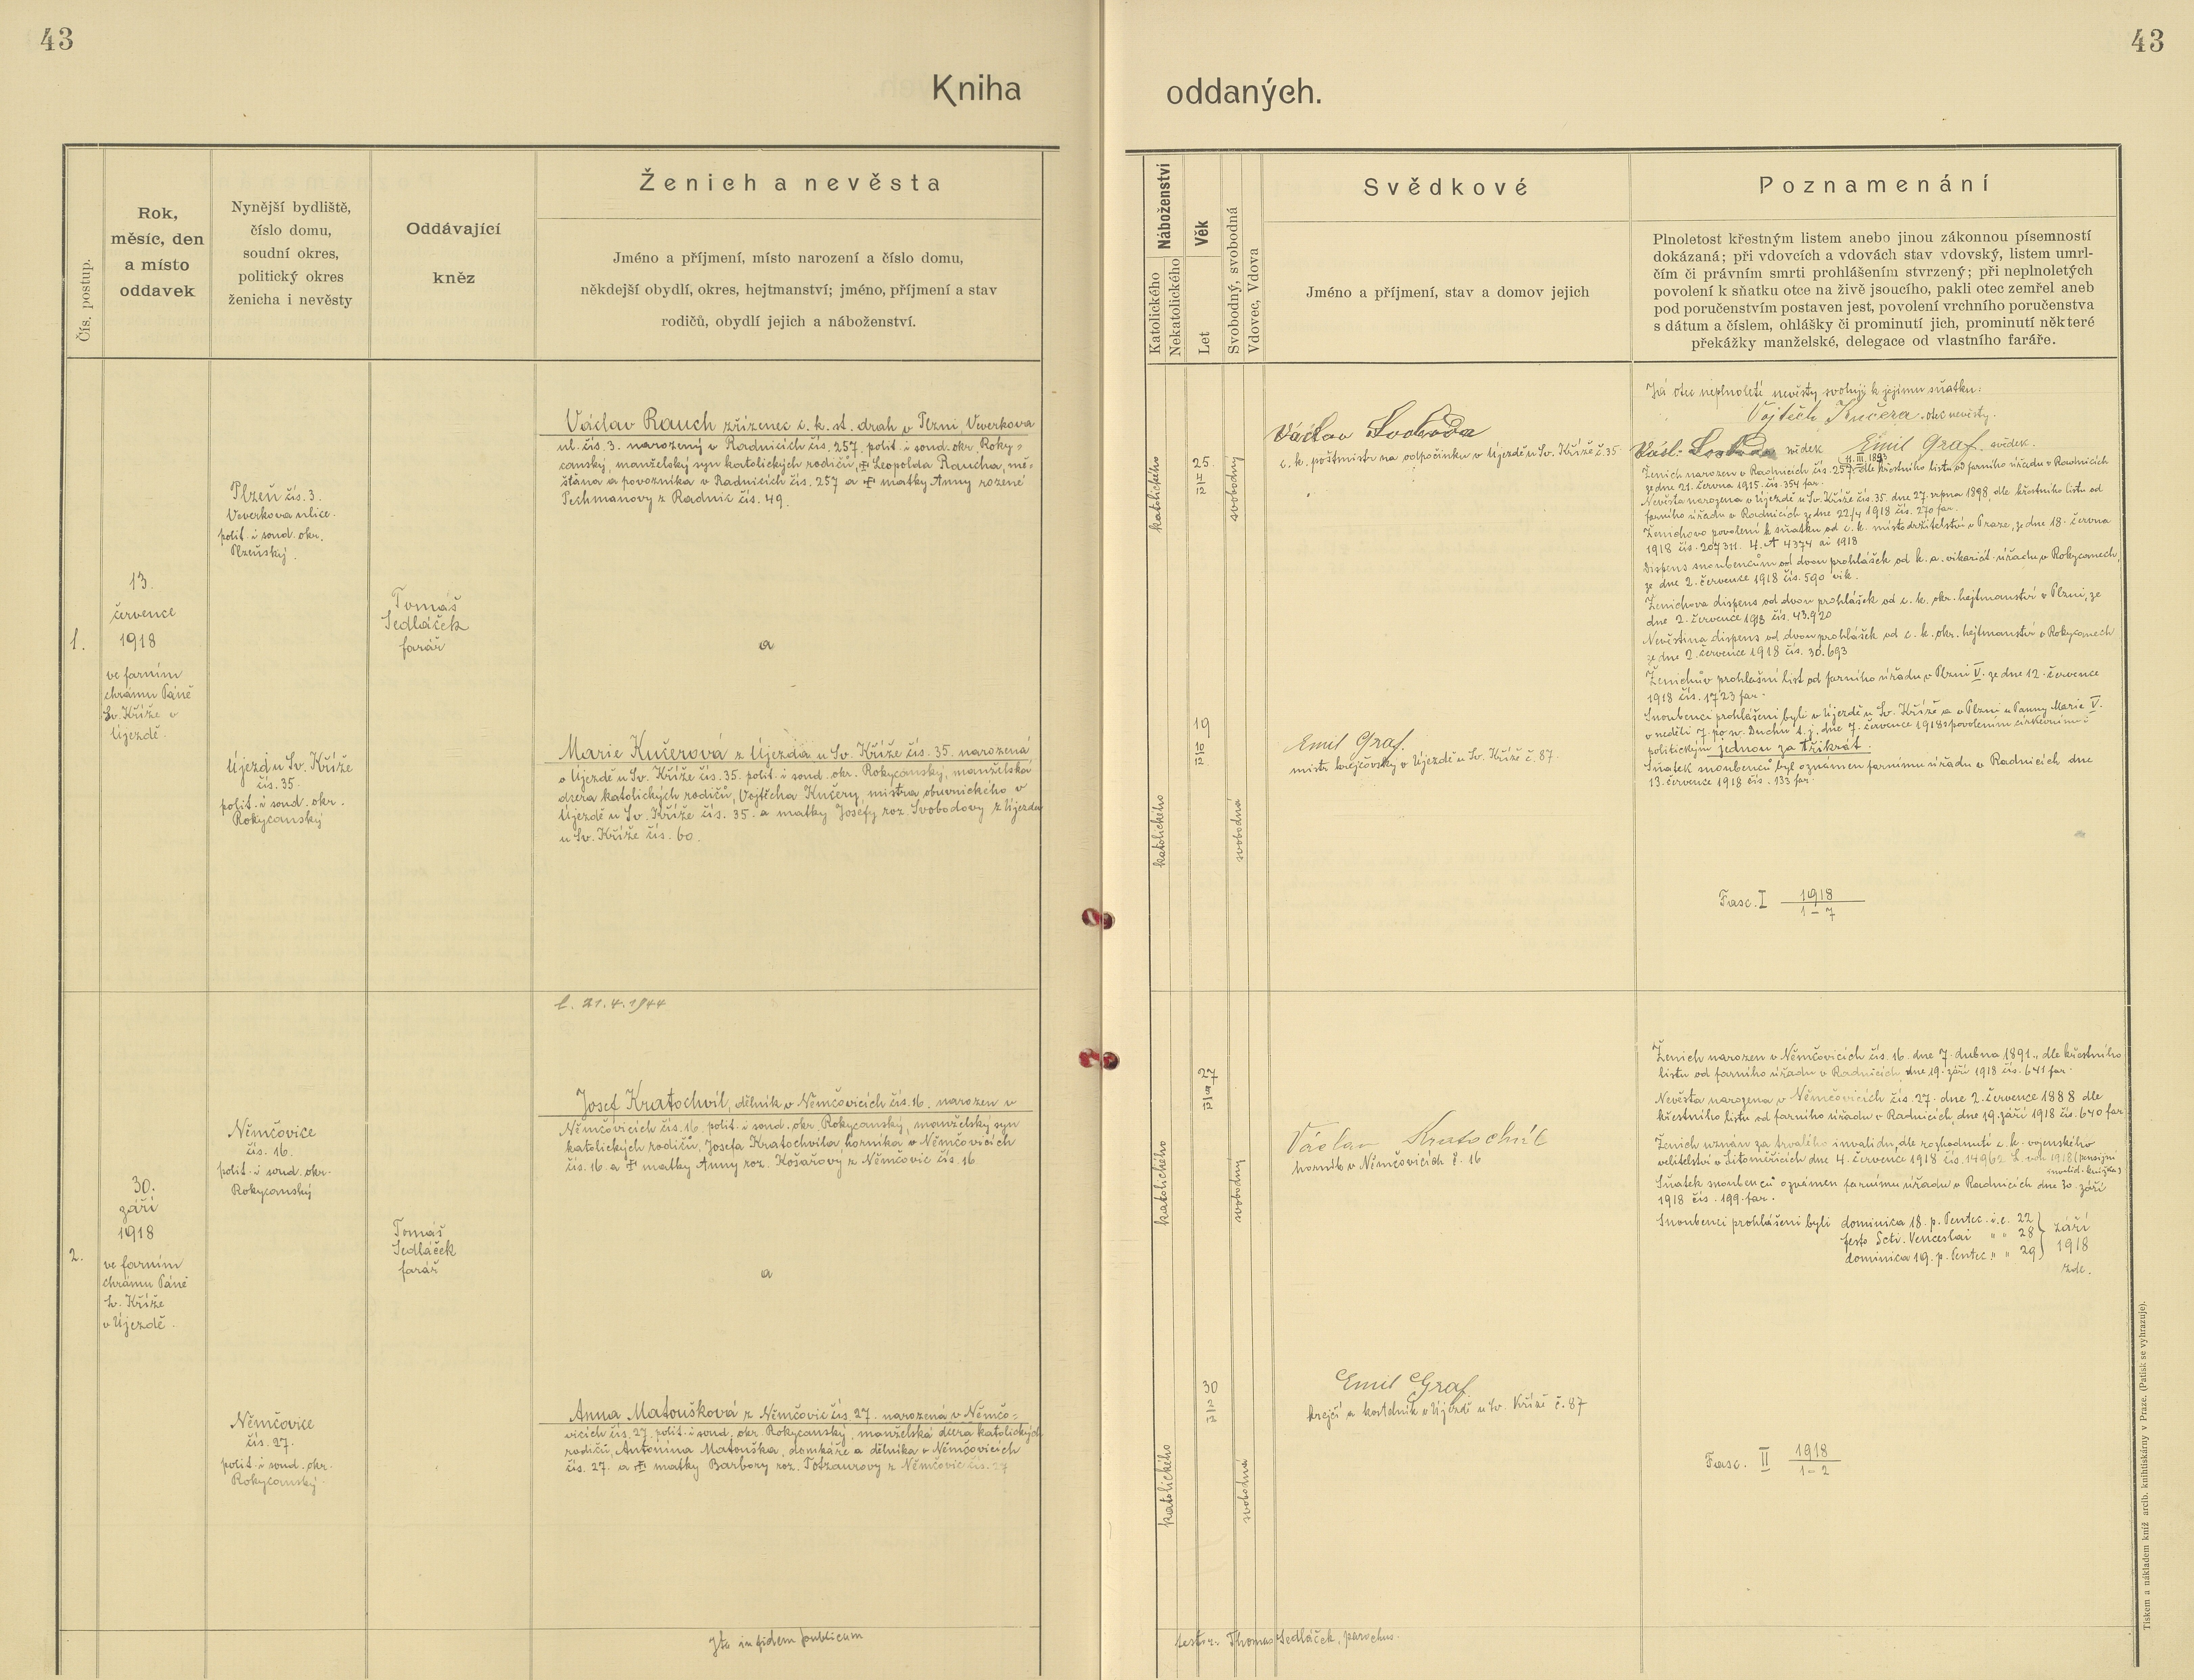 43
43
Kniha oddaných.
Čís. postup.
Rok,
měsíc, den
a místo
oddavek
Nynější bydliště,
číslo domu,
soudní okres,
politický okres
ženicha i nevěsty
Oddávající
kněz
Ženich a nevěsta
Jméno a příjmení, místo narození a číslo domu,
někdejší obydlí, okres, hejtmanství; jméno, příjmení a stav
rodičů, obydlí jejich a náboženství.
Náboženství
Katolického
Nekatolického
Věk
Let
Svobodný, svobodná
Vdovec, Vdova
Svědkové
Jméno a příjmení, stav a domov jejich
Poznamenání
Plnoletost křestným listem anebo jinou zákonnou písemností
dokázaná; při vdovcích a vdovách stav vdovský, listem umrl-
čím či právním smrti prohlášením stvrzený; při neplnoletých
povolení k sňatku otce na živě jsoucího, pakli otec zemřel aneb
pod poručenstvím postaven jest, povolení vrchního poručenstva
s dátum a číslem, ohlášky či prominutí jich, prominutí některé
překážky manželské, delegace od vlastního faráře.
1.
13.
července
1918
ve farním
chrámu Páně
Sv. Kříže v
Újezdě.
Plzeň čís. 3.
Veverkova ulice.
polit. i soud. okr.
Plzeňský.
Újezd u Sv. Kříže
čís. 35.
polit. i soud. okr.
Rokycanský
Tomáš
Sedláček
farář
Václav Rauch zřízenec c. k. st. drah v Plzni, Veverkova
ul. čís. 3. narozený v Radnicích čís. 257. polit. i soud. okr. Roky-
canský, manželský syn katolických rodičů, ✝ Leopolda Raucha, mě-
šťana a povozníka v Radnicích čís. 257 a ✝ matky Anny rozené
Pechmanovy z Radnic čís. 49.
a
Marie Kučerová z Újezda u Sv. Kříže čís. 35. narozená
v Újezdě u Sv. Kříže čís. 35. polit. i soud. okr. Rokycanský, manželská
dcera katolických rodičů, Vojtěcha Kučery, mistra obuvnického v
Újezdě u Sv. Kříže čís. 35. a matky Josefy roz. Svobodovy z Újezda
u Sv. Kříže čís. 60.
katolického
25
4
12
svobodný
katolického
19
10
12
svobodná
Václav Svoboda
c. k. poštmistr na odpočinku v Újezdě u Sv. Kříže č. 35
Emil Graf.
mistr krejčovský v Újezdě u Sv. Kříže č. 87.
Já otec neplnoleté nevěsty svoluji k jejímu sňatku:
Vojtěch Kučera. otec nevěsty.
Václ. Svoboda svědek Emil Graf. svědek.
11. III. 1893
Ženich narozen v Radnicích čís. 257. dle křestního listu od farního úřadu v Radnicích
ze dne 21. června 1915. čís. 354 far.
Nevěsta narozena v Újezdě u Sv. Kříže čís. 35. dne 27. srpna 1898, dle křestního listu od
farního úřadu v Radnicích ze dne 22/4 1918 čís. 270 far.
Ženichovo povolení k sňatku od c. k. místodržitelství v Praze, ze dne 18. června
1918 čís. 207311. 4. A 4374 ai 1918
Dispens snoubencům od dvou prohlášek od k. a. vikariát. úřadu v Rokycanech,
ze dne 2. července 1918 čís. 590 vik.
Ženichova dispens od dvou prohlášek od c. k. okr. hejtmanství v Plzni, ze
dne 2. července 1918 čís. 43.920
Nevěstina dispens od dvou prohlášek od c. k. okr. hejtmanství v Rokycanech
ze dne 2. července 1918 čís. 30.693
Ženichův prohlašní list od farního úřadu v Plzni V. ze dne 12. července
1918 čís. 1723 far.
Snoubenci prohlášeni byli v Újezdě u Sv. Kříže a v Plzni u Panny Marie V.
v neděli 7. po sv. Duchu t. j. dne 7. července 1918 s povolením církevním i
politickým jednou za třikrát.
Sňatek snoubenců byl oznámen farnímu úřadu v Radnicích dne
13. července 1918 čís. 133 far.
Fasc. I 1918
1 - 7
2.
30.
září
1918
ve farním
chrámu Páně
Sv. Kříže
v Újezdě.
Němčovice
čís. 16.
polit. i soud. okr.
Rokycanský
Němčovice
čís. 27.
polit. i soud. okr.
Rokycanský.
Tomáš
Sedláček
farář
21. 4. 1944
Josef Kratochvíl, dělník v Němčovicích čís. 16. narozen v
Němčovicích čís. 16. polit. i soud. okr. Rokycanský, manželský syn
katolických rodičů, Josefa Kratochvíla horníka v Němčovicích
čís. 16 a ✝ matky Anny roz. Košařový z Němčovic čís. 16
a
Anna Matoušková z Němčovic čís. 27. narozená v Němčo-
vicích čís. 27. polit. i soud. okr. Rokycanský, manželská dcera katolických
rodičů, Antonína Matouška, domkáře a dělníka v Němčovicích
čís. 27. a ✝ matky Barbory roz. Totzaurovy z Němčovic čís. 27
katolického
27
svobodný
katolického
30
2
12
svobodná
Václav Kratochvíl
horník v Němčovicích č. 16
Emil Graf
krejčí a kostelník v Újezdě u Sv. Kříže č. 87
Ženich narozen v Němčovicích čís. 16. dne 7. dubna 1891., dle křestního
listu od farního úřadu v Radnicích, dne 19. září 1918 čís. 641 far.
Nevěsta narozena v Němčovicích čís. 27. dne 2. července 1888 dle
křestního listu od farního úřadu v Radnicích, dne 19. září 1918 čís. 640 far.
Ženich uznán za trvalého invalidu, dle rozhodnutí c. k. vojenského
velitelství v Litoměřicích dne 4. července 1918 čís. 14962 (pensijní
invalid. knížka)
Sňatek snoubenců oznámen farnímu úřadu v Radnicích dne 30. září
1918 čís. 199. far.
Snoubenci prohlášeni byli dominica 18. p. Pentec. i. e. 22
festo Scti. Venceslai " " 28
dominica 19. p. Pentec. " " 29
září
1918
zde.
Fasc. II 1918
1 - 2
Ita in fidem publicum
testor. Thomas Sedláček, parochus.
Tiskem a nákladem kníž. arcib. knihtiskárny v Praze. (Patisk se vyhrazuje).